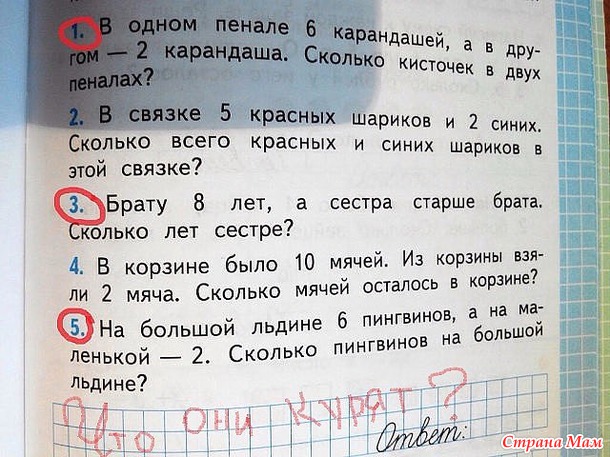 1. В одном пенале 6 карандашей, а в дру-
гом — 2 карандаша. Сколько кисточек в двух
пеналах?
2. В связке 5 красных шариков и 2 синих.
Сколько всего красных и синих шариков в
этой связке?
3. Брату 8 лет, а сестра старше брата.
Сколько лет сестре?
4. В корзине было 10 мячей. Из корзины взя-
ли 2 мяча. Сколько мячей осталось в корзине?
5. На большой льдине 6 пингвинов, а на ма-
ленькой — 2. Сколько пингвинов на большой
льдине?
Что они курят?
Ответ:
Страна Мам